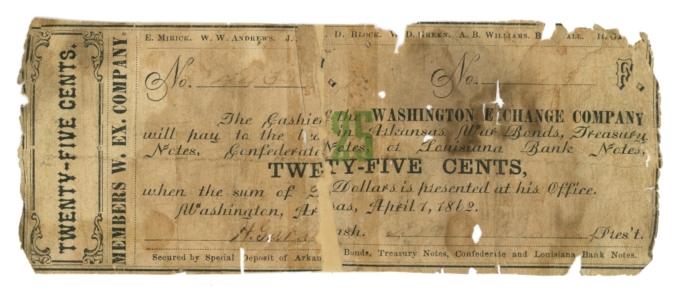 TWENTY-FIVE CENTS.
MEMBERS W. EX. COMPANY.
E. MIRICK. W. W. ANDREWS. J. D. BLOCK. W. D. GREEN. A. B. WILLIAMS.
No. No.
The Cashier of the WASHINGTON EXCHANGE COMPANY
will pay to the in Arkansas War Bonds, Treasury
Notes, Confederate Notes, or Louisiana Bank Notes,
TWENTY-FIVE CENTS,
when the sum of Dollars is presented at his Office.
Washington, Arkansas, April 1, 1862.
Cash. Pres't.
Secured by Special Deposit of Arkansas Bonds, Treasury Notes, Confederate and Louisiana Bank Notes.